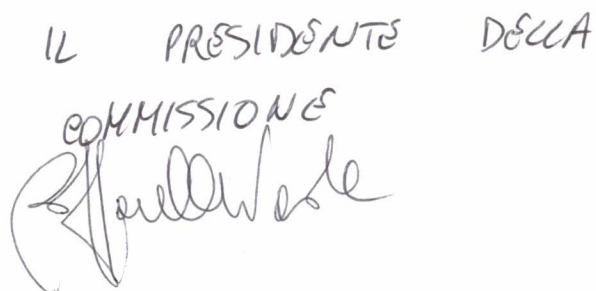 IL PRESIDENTE DELLA
COMMISSIONE